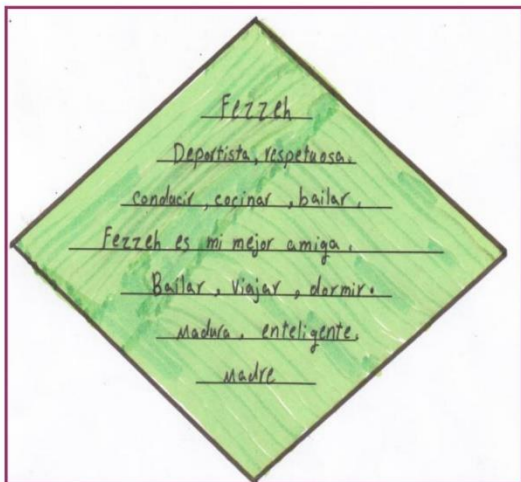 Fezzeh
Deportista, respetuosa.
conducir, cocinar, bailar.
Fezzeh es mi mejor amiga.
Bailar, viajar, dormir.
Madura, enteligente.
Madre